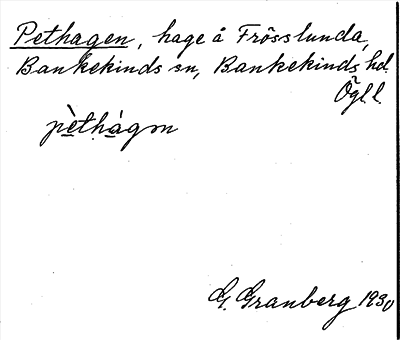 Pethagen, hage å Frösslunda,
Bankekinds sn, Bankekinds hd.
Ögl.
pèthágən
G. Granberg 1930